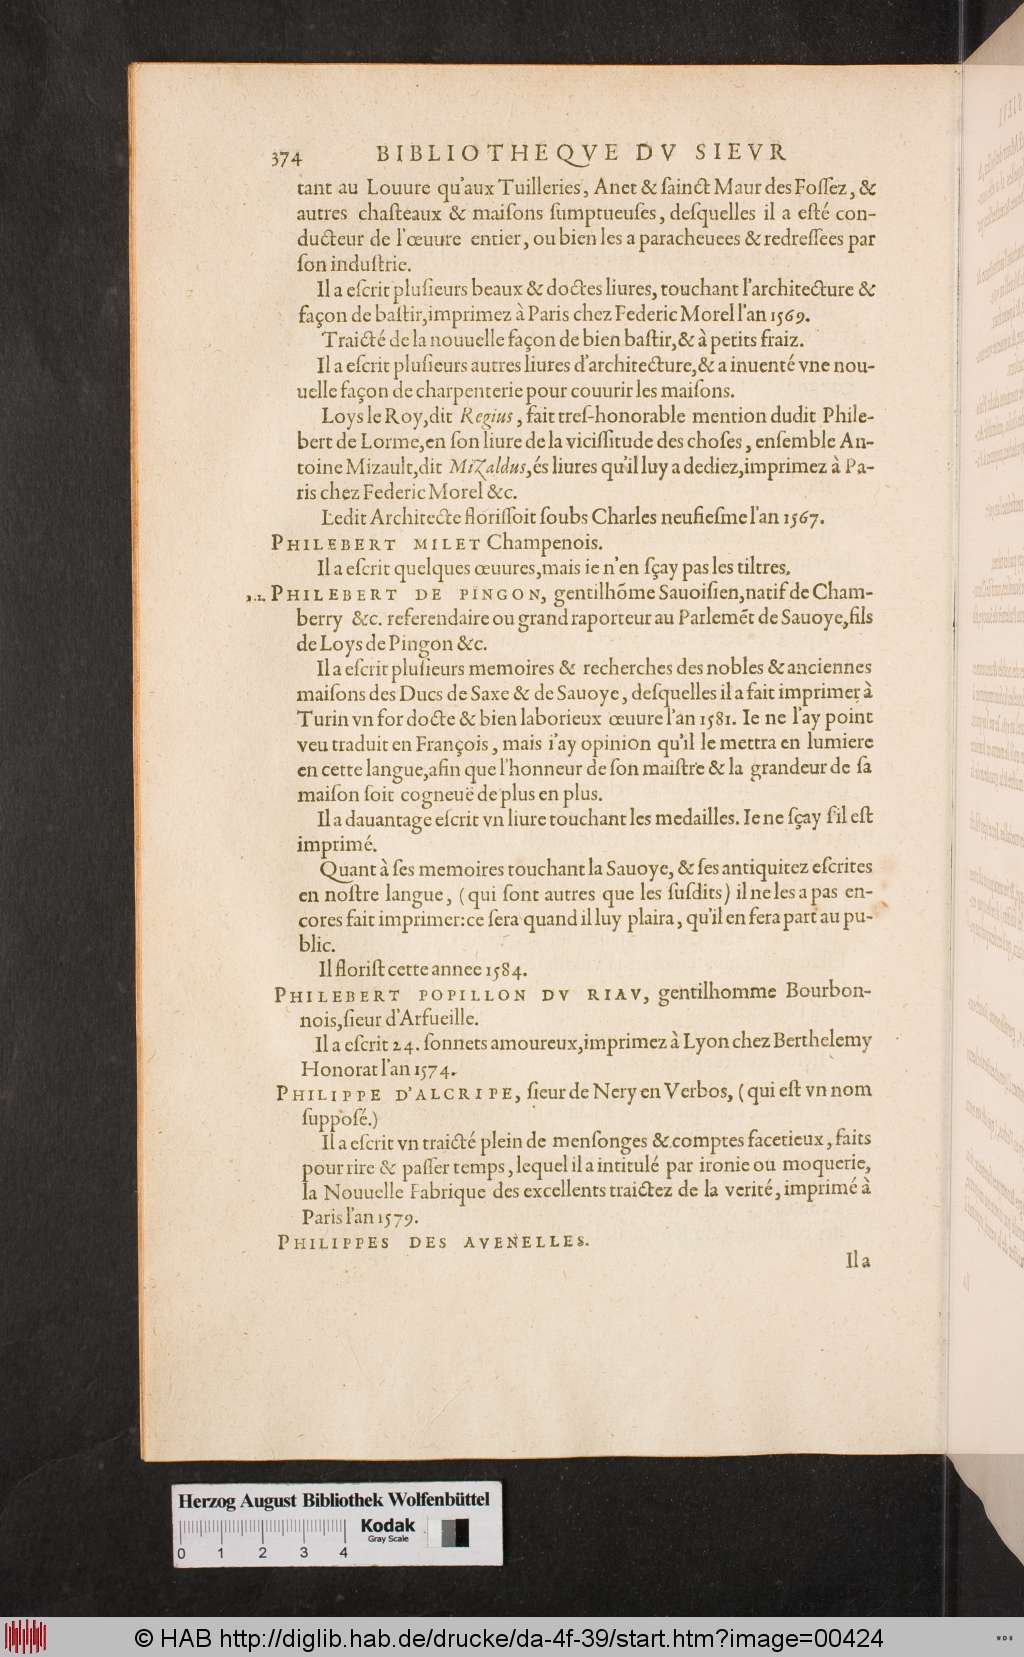 374 BIBLIOTHEQVE DV SIEVR
tant au Louure qu'aux Tuilleries, Anet & ſainct Maur des Foſſez, &
autres chaſteaux & maiſons ſumptueuſes, deſquelles il a eſté con-
ducteur de l'œuure entier, ou bien les a paracheuees & redreſſees par
ſon induſtrie.
Il a eſcrit pluſieurs beaux & doctes liures, touchant l'architecture &
façon de baſtir,imprimez à Paris chez Federic Morel l'an 1569.
Traicté de la nouuelle façon de bien baſtir,& à petits fraiz.
Il a eſcrit pluſieurs autres liures d'architecture,& a inuenté vne nou-
uelle façon de charpenterie pour couurir les maiſons.
Loys le Roy,dit Regius, fait treſ-honorable mention dudit Phile-
bert de Lorme,en ſon liure de la viciſſitude des choſes, enſemble An-
toine Mizault,dit Mizaldus,és liures qu'il luy a dediez,imprimez à Pa-
ris chez Federic Morel &c.
Ledit Architecte floriſſoit ſoubs Charles neufieſme l'an 1567.
PHILEBERT MILET Champenois.
Il a eſcrit quelques œuures,mais ie n'en ſçay pas les tiltres.
PHILEBERT DE PINGON, gentilhõme Sauoiſien,natif de Cham-
berry &c. referendaire ou grand raporteur au Parlemẽt de Sauoye,fils
de Loys de Pingon &c.
Il a eſcrit pluſieurs memoires & recherches des nobles & anciennes
maiſons des Ducs de Saxe & de Sauoye, deſquelles il a fait imprimer à
Turin vn for docte & bien laborieux œuure l'an 1581. Ie ne l'ay point
veu traduit en François, mais i'ay opinion qu'il le mettra en lumiere
en cette langue,afin que l'honneur de ſon maiſtre & la grandeur de ſa
maiſon ſoit cogneuë de plus en plus.
Il a dauantage eſcrit vn liure touchant les medailles. Ie ne ſçay ſ'il eſt
imprimé.
Quant à ſes memoires touchant la Sauoye, & ſes antiquitez eſcrites
en noſtre langue, (qui ſont autres que les ſuſdits) il ne les a pas en-
cores fait imprimer:ce ſera quand il luy plaira, qu'il en fera part au pu-
blic.
Il floriſt cette annee 1584.
PHILEBERT POPILLON DV RIAV, gentilhomme Bourbon-
nois,ſieur d'Arfueille.
Il a eſcrit 24. ſonnets amoureux,imprimez à Lyon chez Berthelemy
Honorat l'an 1574.
PHILIPPE D'ALCRIPE, ſieur de Nery en Verbos, (qui eſt vn nom
ſuppoſé.)
Il a eſcrit vn traicté plein de menſonges & comptes facetieux, faits
pour rire & paſſer temps, lequel il a intitulé par ironie ou moquerie,
la Nouuelle Fabrique des excellents traictez de la verité, imprimé à
Paris l'an 1579.
PHILIPPES DES AVENELLES.
Il a
Herzog August Bibliothek Wolfenbüttel
Kodak
Gray Scale
0 1 2 3 4
© HAB http://diglib.hab.de/drucke/da-4f-39/start.htm?image=00424